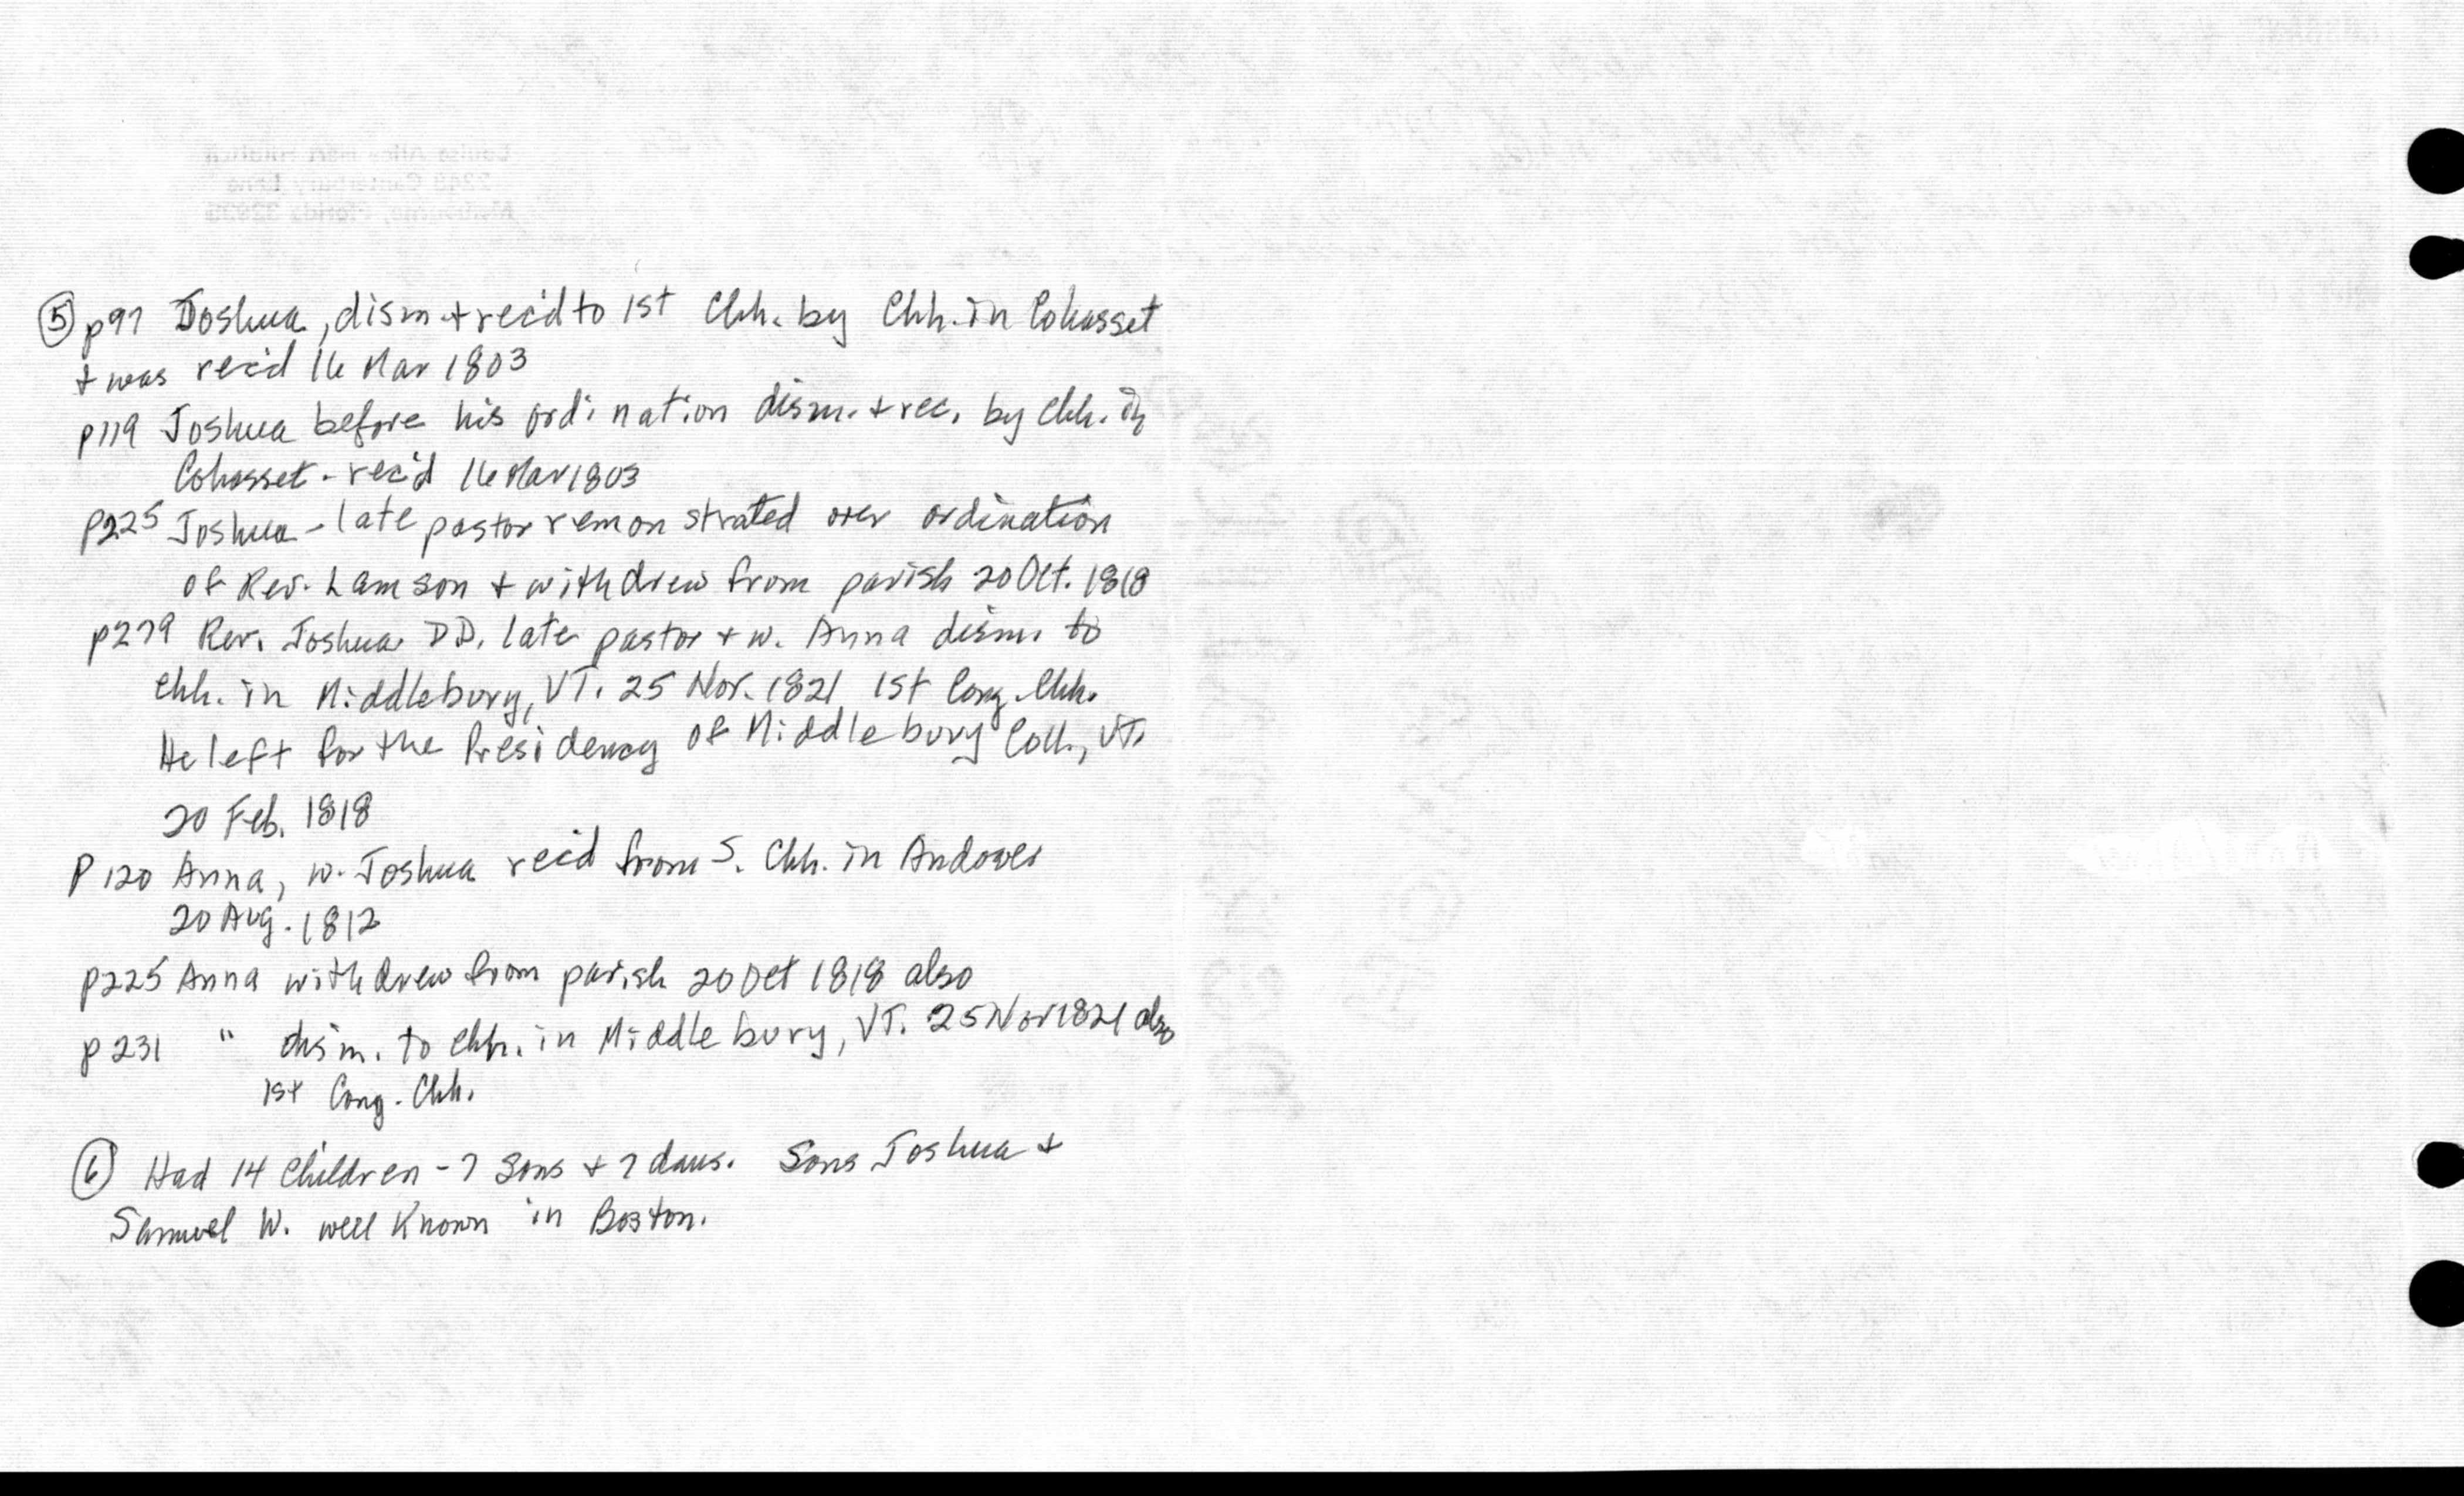 ⑤ p97 Joshua, dism. + rec'd to 1st Chh. by Chh. in Cohasset
+ was rec'd 16 Mar 1803
p119 Joshua before his ordination dism. + rec. by Chh. in
Cohasset - rec'd 16 Mar 1803
p225 Joshua - late pastor remonstrated over ordination
of Rev. Lamson + withdrew from parish 20 Oct. 1818
p279 Rev. Joshua DD. late pastor + w. Anna dism. to
Chh. in Middlebury, VT. 25 Nov. 1821 1st Cong. Chh.
He left for the Presidency of Middlebury Coll., VT.
20 Feb. 1818
P 120 Anna, w. Joshua rec'd from S. Chh. in Andover
20 Aug. 1812
p225 Anna withdrew from parish 20 Oct 1818 also
p 231 " dism. to Chh. in Middlebury, VT. 25 Nov 1821 also
1st Cong. Chh.
⑥ Had 14 Children - 7 Sons + 7 daus. Sons Joshua +
Samuel W. well known in Boston.